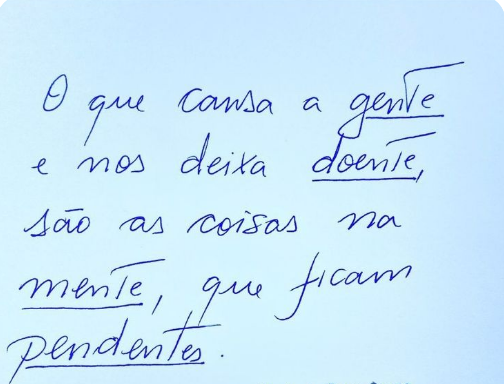 O que cansa a gente
e nos deixa doente,
são as coisas na
mente, que ficam
pendentes.